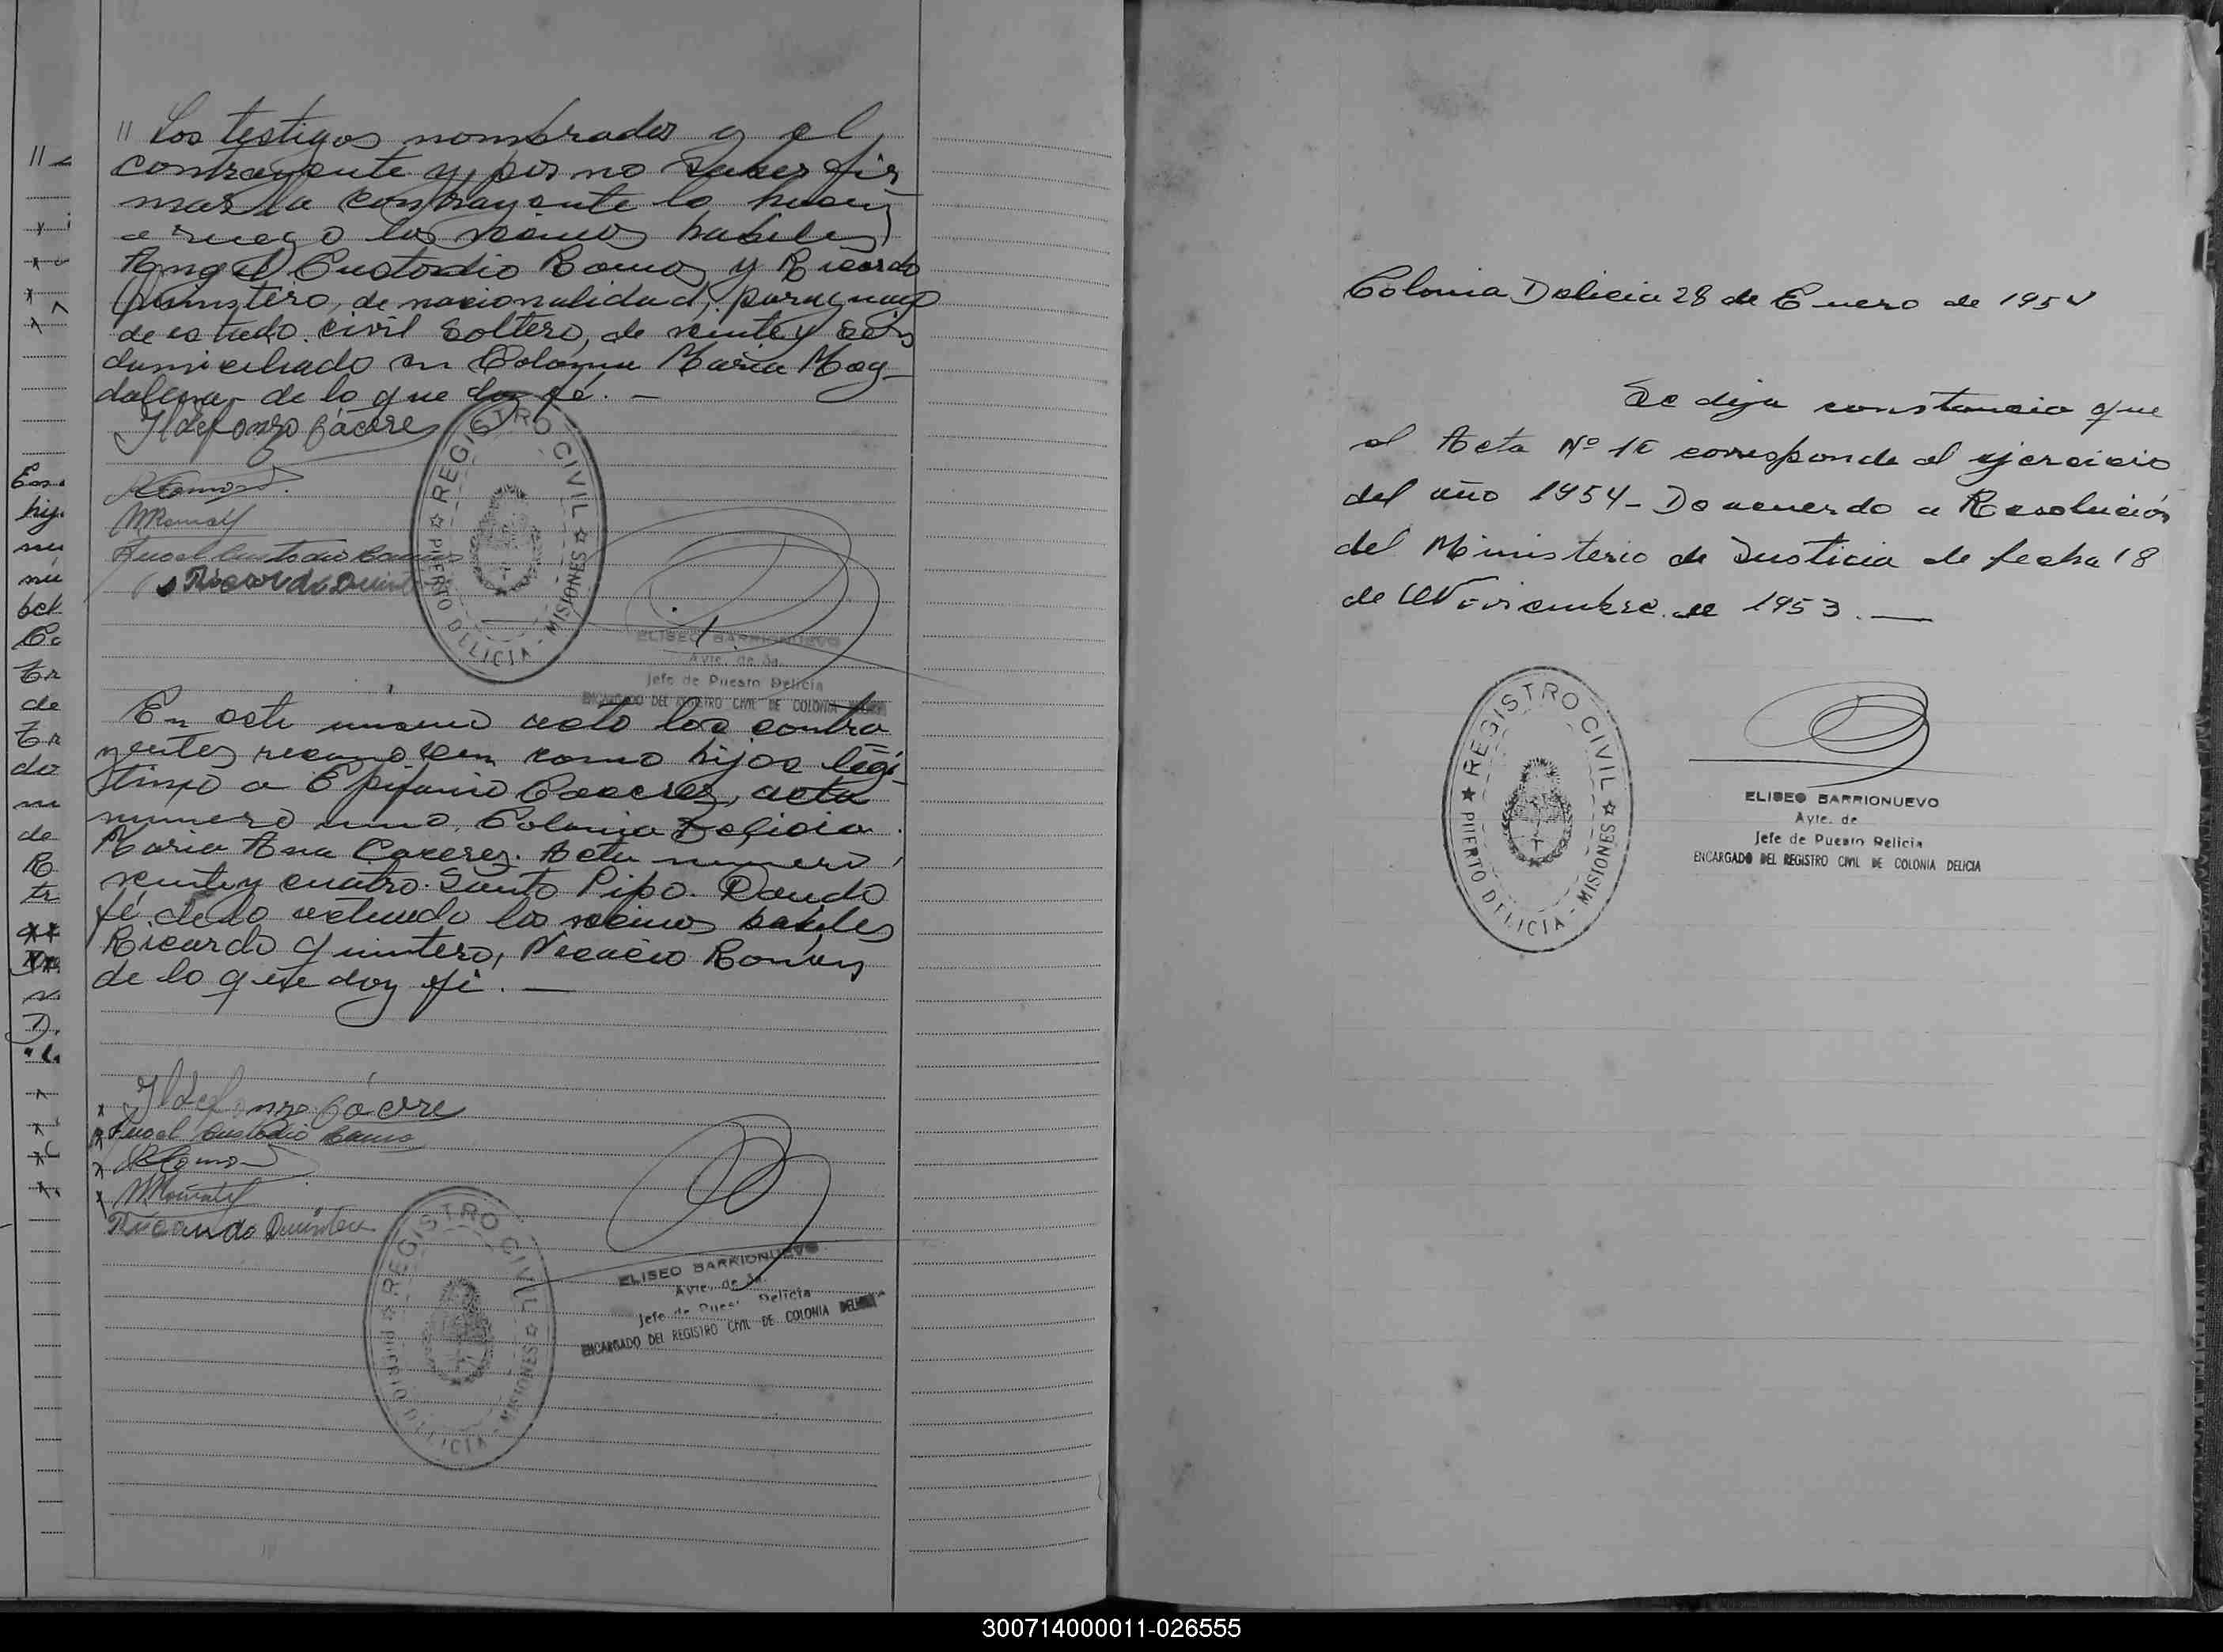 " Los testigos nombrados y el
contrayente y por no saber fir
mar la contrayente lo hacen
a ruego los vecinos habiles
Angel Custodio Ramos y Ricardo
Quinstero, de nacionalidad, paraguayo
de estado civil soltero, de veinte y seis
domiciliado en Colonia Maria Mag-
dalena, de lo que doy fé. —
Ildefonzo Cácere
Angel Custodio Ramos
Ricardo Quint
REGISTRO CIVIL
PUERTO DELICIA - MISIONES
ELISEO BARRIONUEVO
Ayte. de 3a.
Jefe de Puesto Delicia
ENCARGADO DEL REGISTRO CIVIL DE COLONIA
En este mismo acto los contra
yentes reconocen como hijos legi-
timo a Epifanio Caceres, acta
numero uno, Colonia Delicia.
Maria Ana Caceres. Acta numero
veinte y cuatro. Santo Pipo. Dando
fé de lo actuado los vecinos habiles
Ricardo Quintero,
de lo que doy fé. —
Ildefonzo Cácere
Angel Custodio Ramos
Ricardo Quintero
REGISTRO CIVIL
PUERTO DELICIA - MISIONES
ELISEO BARRIONUEVO
Ayte. de 3a.
Jefe de Puesto Delicia
ENCARGADO DEL REGISTRO CIVIL DE COLONIA DELICIA
Colonia Delicia 28 de Enero de 1954
Se deja constancia que
el Acta Nº corresponde al ejercicio
del año 1954 - De acuerdo a Resolución
del Ministerio de Justicia de fecha 18
de Noviembre de 1953. —
REGISTRO CIVIL
PUERTO DELICIA - MISIONES
ELISEO BARRIONUEVO
Ayte. de
Jefe de Puesto Delicia
ENCARGADO DEL REGISTRO CIVIL DE COLONIA DELICIA
300714000011-026555